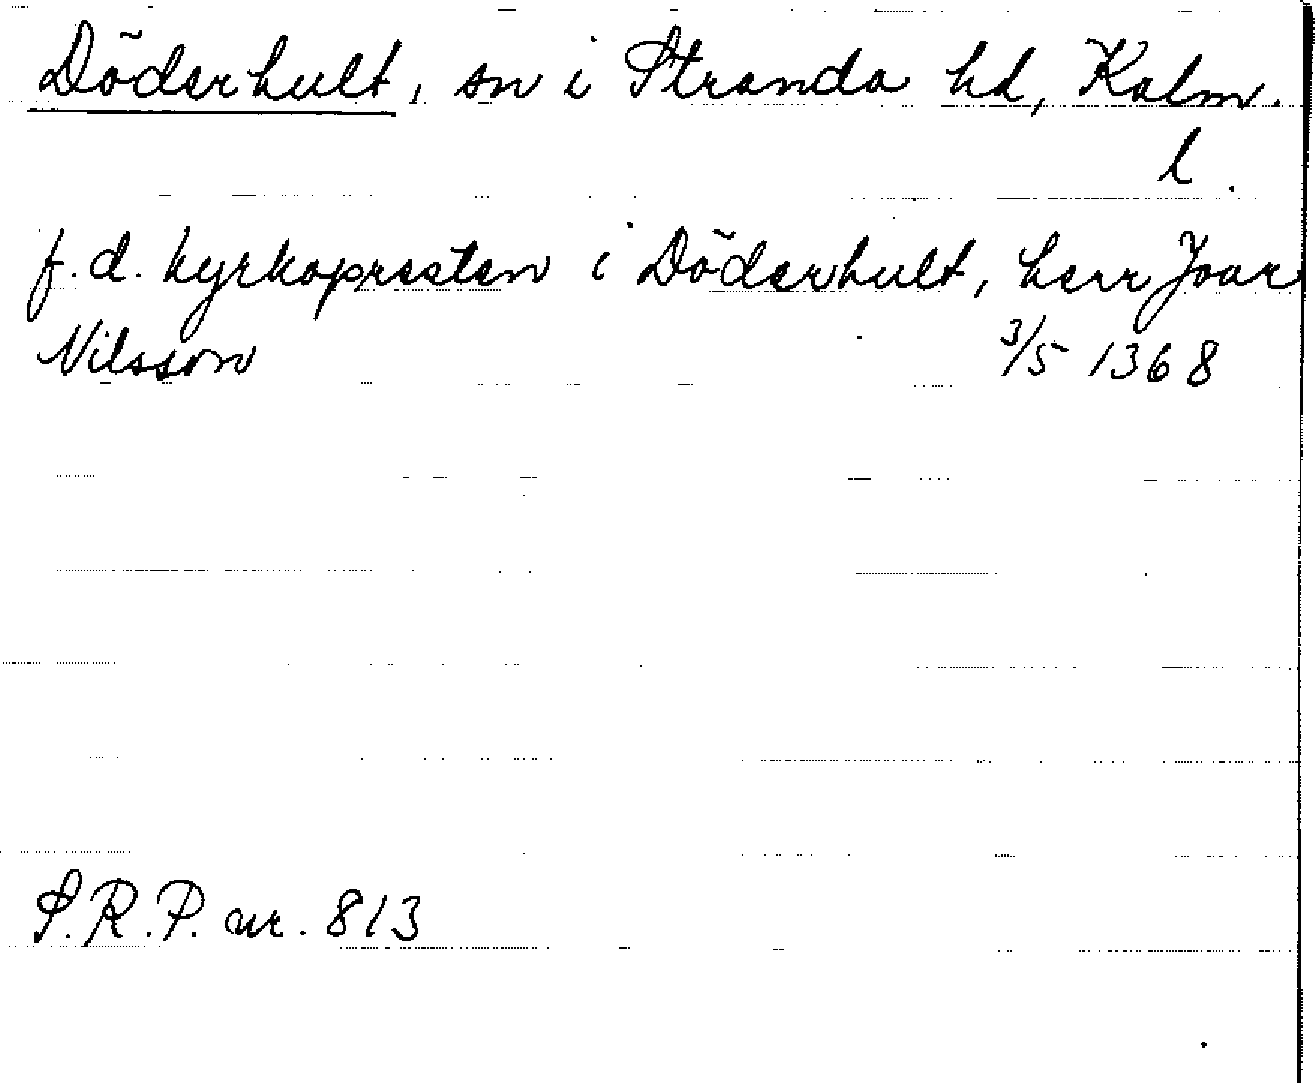 Döderhult, sn i Stranda hd, Kalm.
l.
f.d. kyrkopresten i Döderhult, herr Joar
Nilsson 3/5 1368
S.R.P. nr. 813